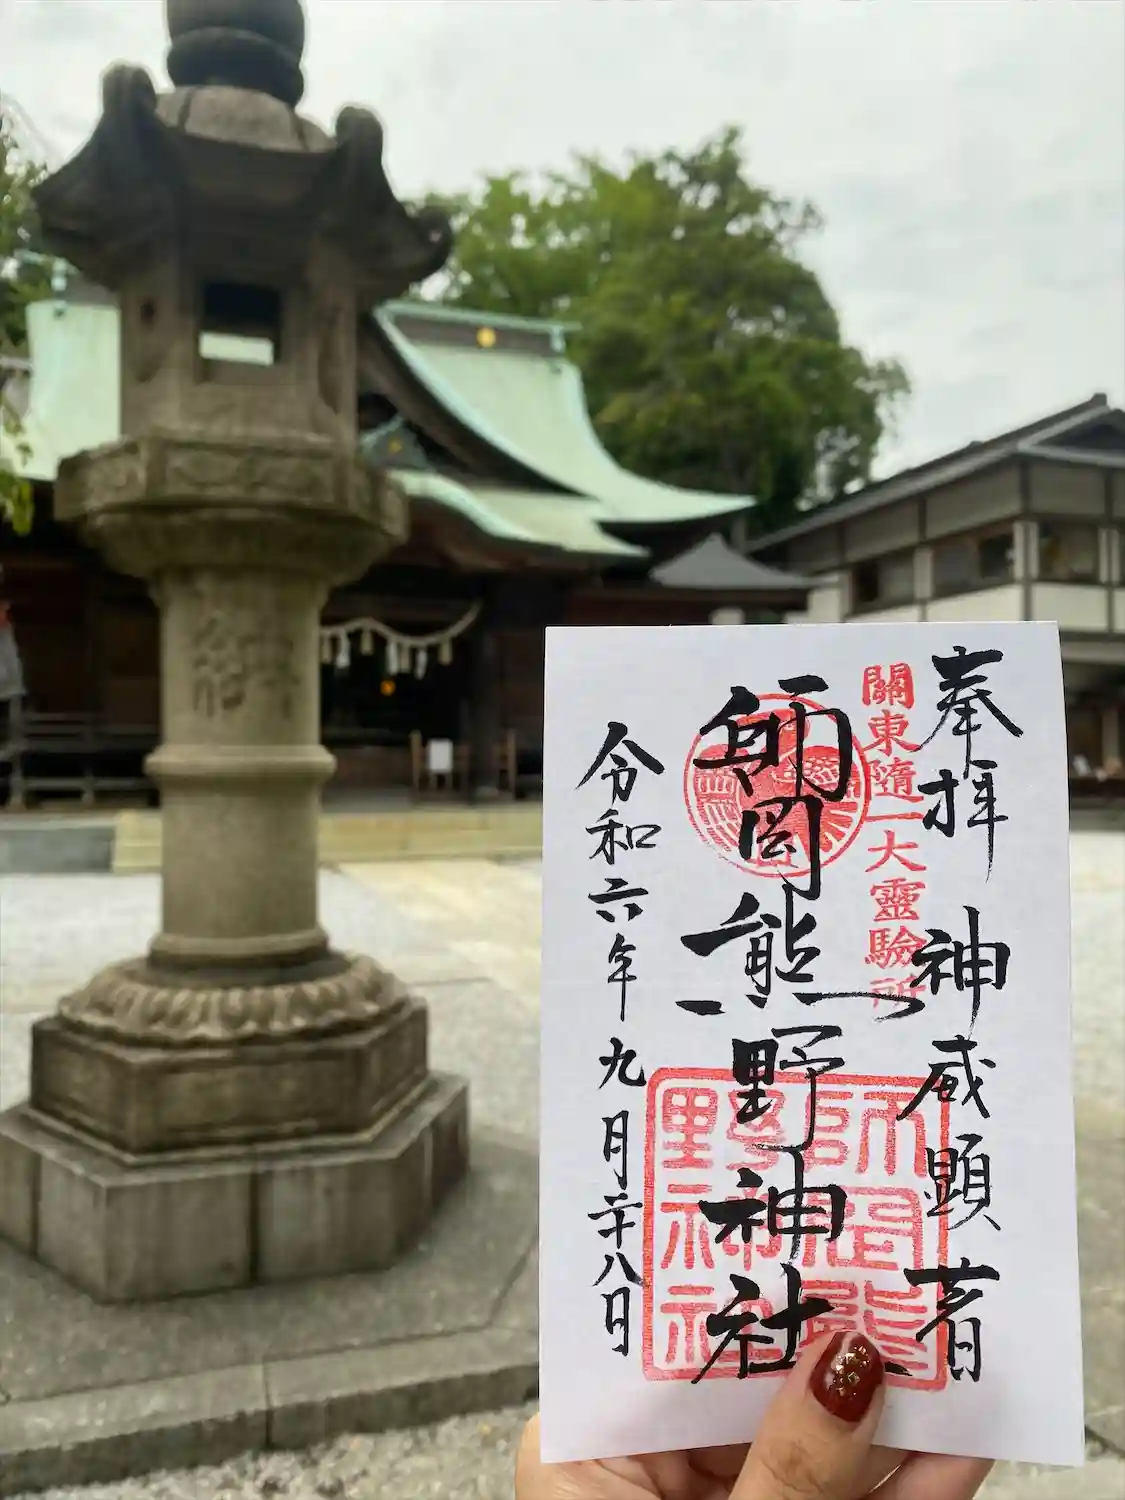 奉拝 神威顕著
關東随一大靈驗所
師岡熊野神社
令和六年九月二十八日
師岡熊
野神社